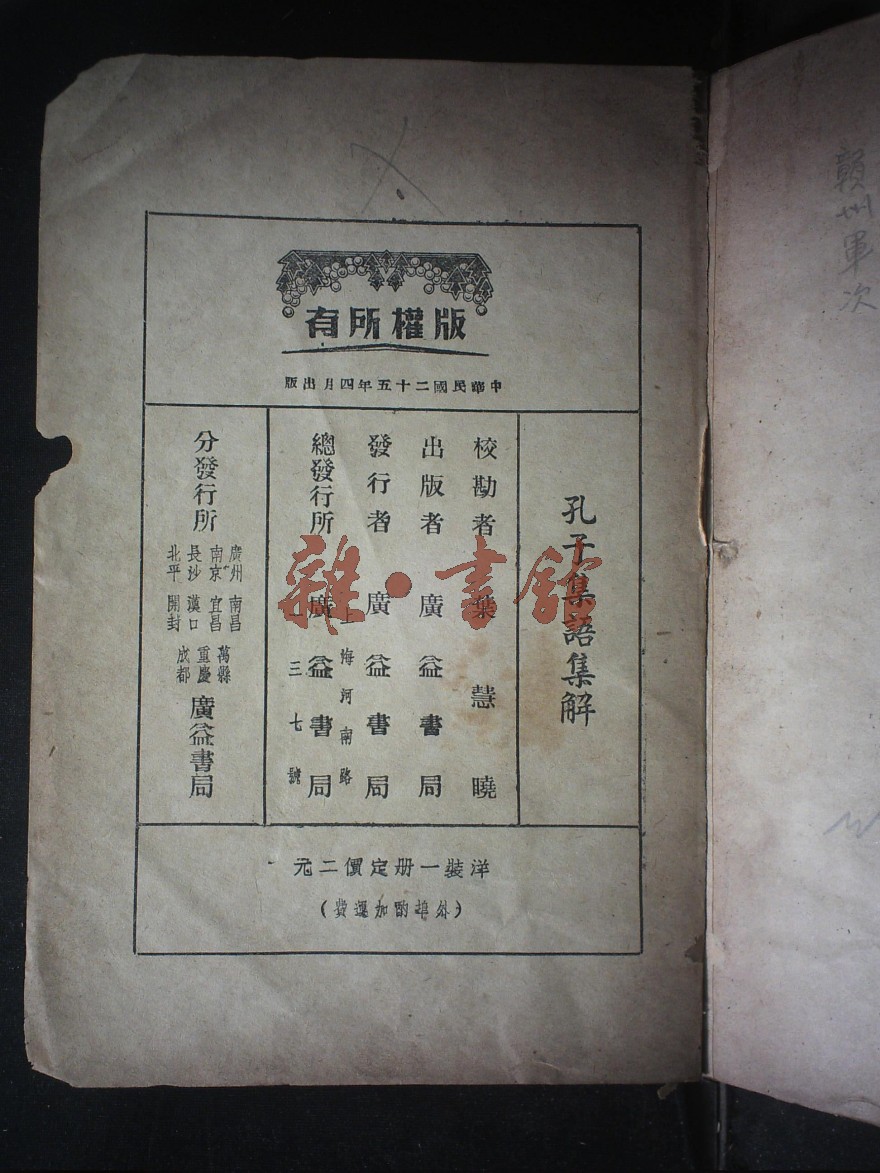 版權所有
中華民國二十五年四月出版
孔子集語集解
校勘者 葉慧曉
出版者 廣益書局
發行者 廣益書局
總發行所 上海河南路一三七號 廣益書局
分發行所
廣州 南昌 萬縣
南京 宜昌 重慶
長沙 漢口 成都
北平 開封
廣益書局
洋裝一册定價二元
(外埠酌加運費)
雜·書館
贛州軍次